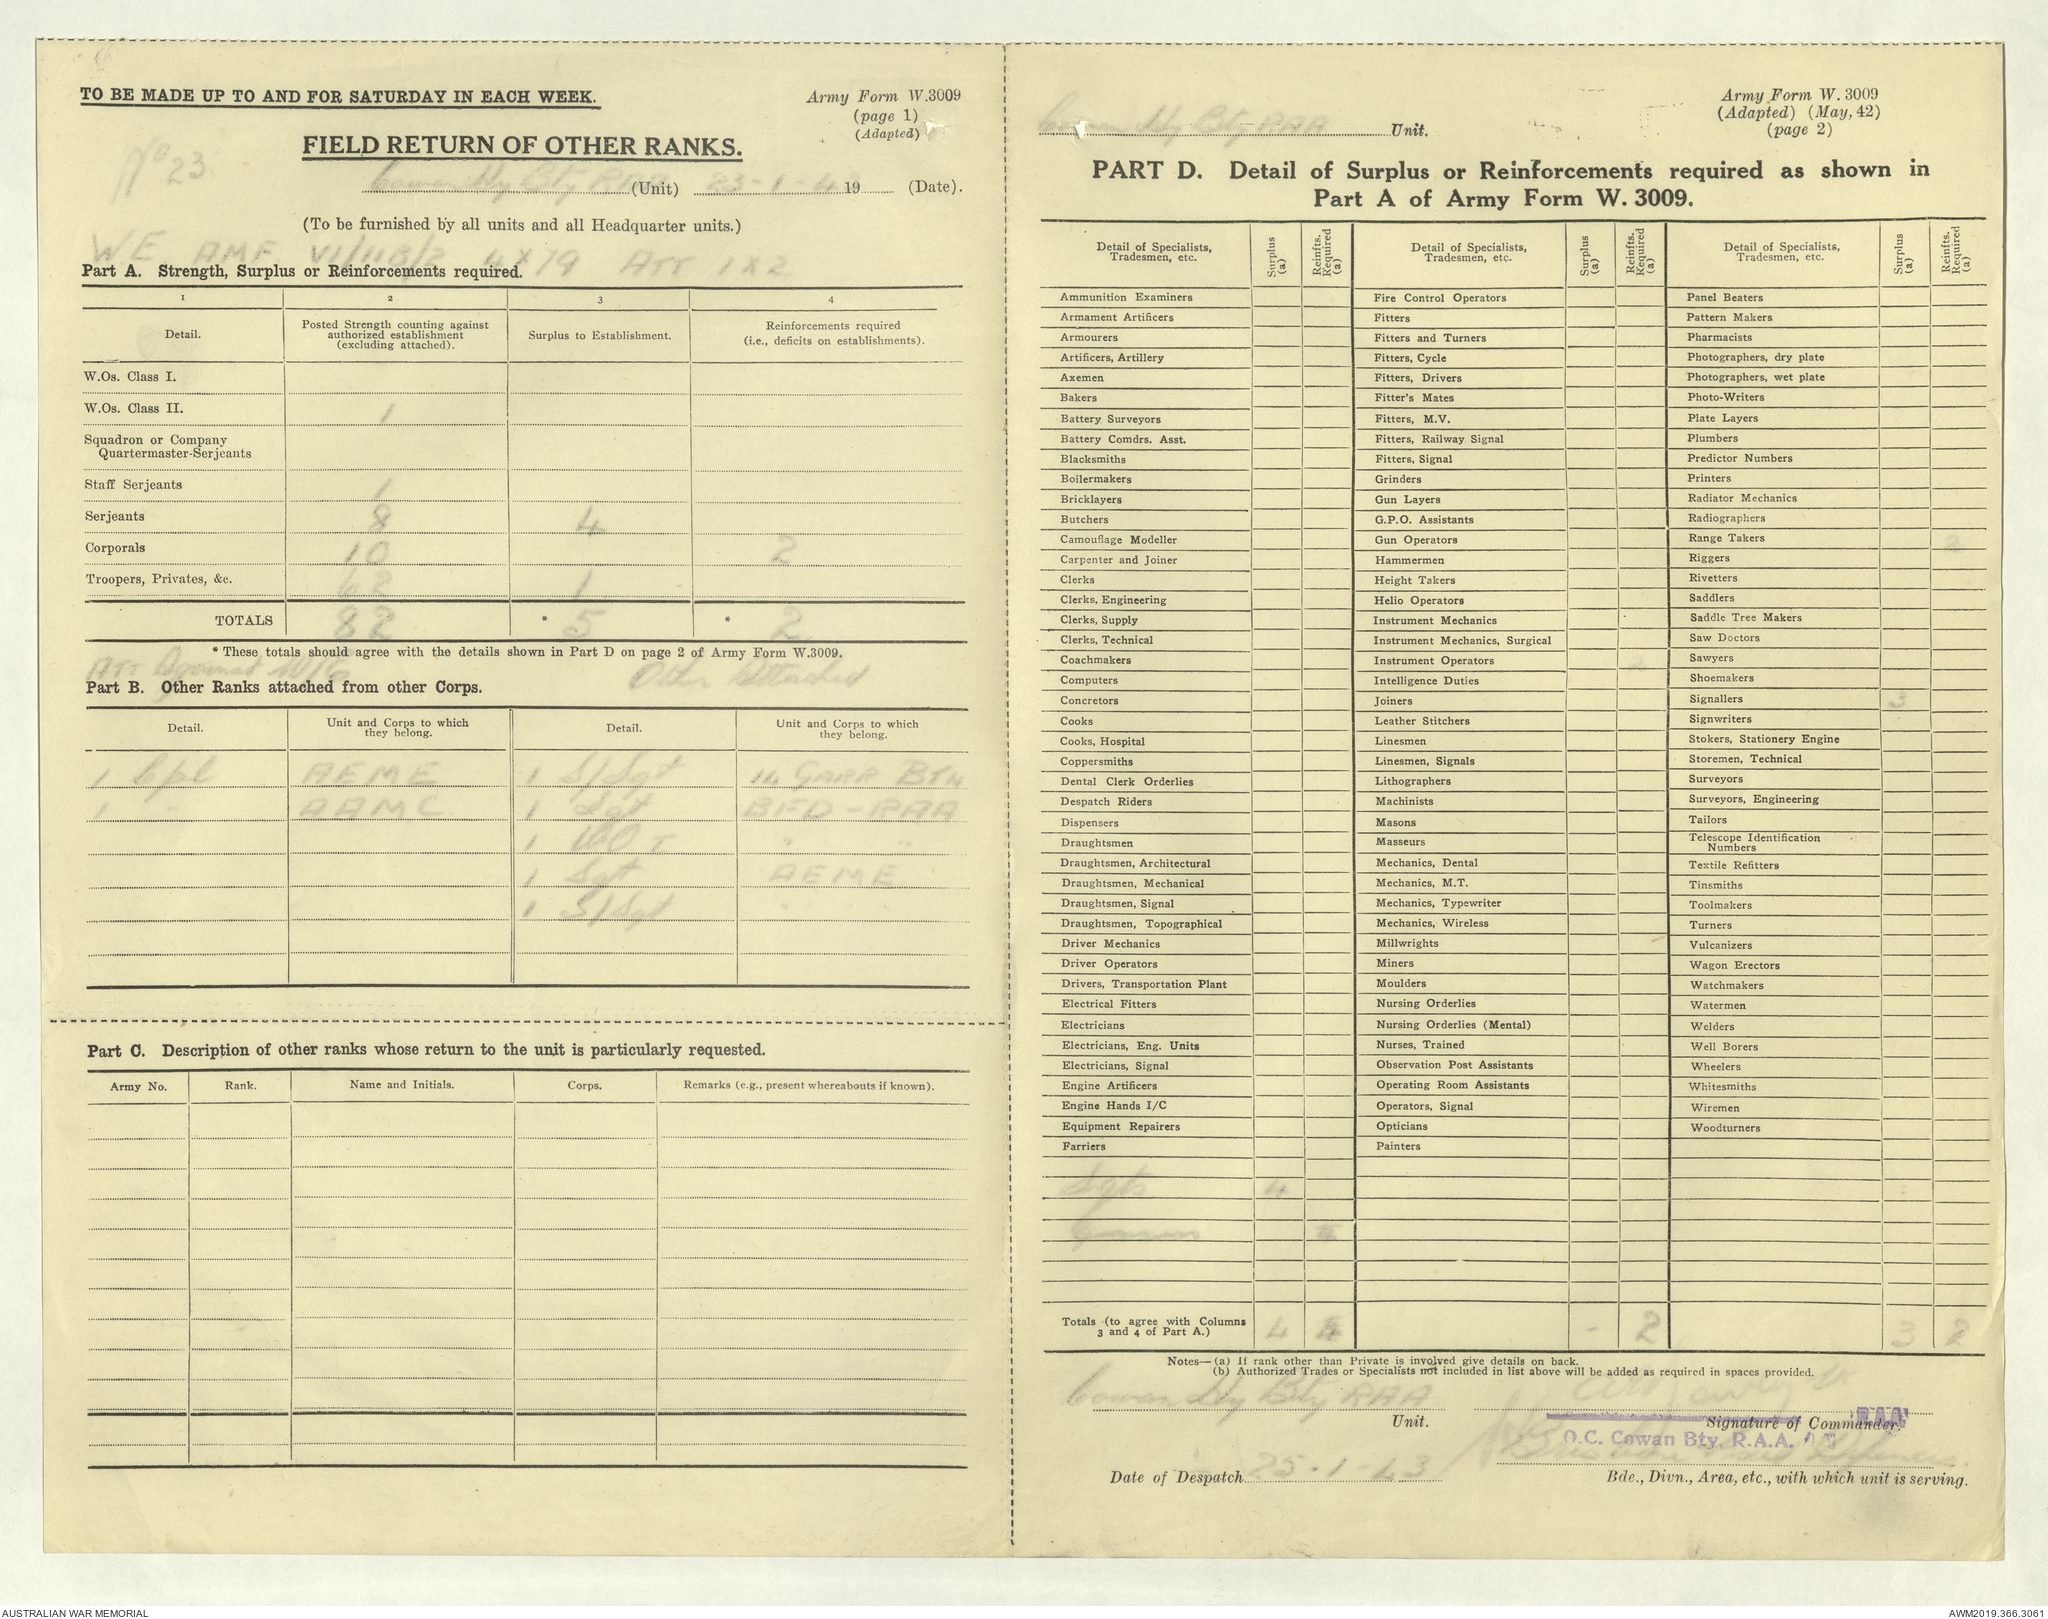 TO BE MADE UP TO AND FOR SATURDAY IN EACH WEEK.
Army Form W.3009
(page 1)
(Adapted)
FIELD RETURN OF OTHER RANKS.
No 23
Cowan Hy Bty RAA (Unit) 23-1-4 19 (Date).
(To be furnished by all units and all Headquarter units.)
WE AMF VI/118/2 4 X 19 ATT 1 X 2
Part A. Strength, Surplus or Reinforcements required.
1 2 3 4
Detail. Posted Strength counting against authorized establishment (excluding attached). Surplus to Establishment. Reinforcements required (i.e., deficits on establishments).
W.Os. Class I.
W.Os. Class II. 1
Squadron or Company
Quartermaster-Serjeants
Staff Serjeants 1
Serjeants 8 4
Corporals 10 2
Troopers, Privates, &c. 62 1
TOTALS 82 * 5 * 2
* These totals should agree with the details shown in Part D on page 2 of Army Form W.3009.
Att Against W/E Other Attached
Part B. Other Ranks attached from other Corps.
Detail. Unit and Corps to which they belong. Detail. Unit and Corps to which they belong.
1 Cpl AEME 1 S/Sgt 14 GARR BTN
1 " AAMC 1 Sgt BFD-RAA
1 WO I " "
1 Sgt AEME
1 S/Sgt " "
Part C. Description of other ranks whose return to the unit is particularly requested.
Army No. Rank. Name and Initials. Corps. Remarks (e.g., present whereabouts if known).
Army Form W. 3009
(Adapted) (May, 42)
(page 2)
Cowan Hy Bty RAA Unit.
PART D. Detail of Surplus or Reinforcements required as shown in
Part A of Army Form W. 3009.
Detail of Specialists, Tradesmen, etc. Surplus (a) Reinfts. Required (a) Detail of Specialists, Tradesmen, etc. Surplus (a) Reinfts. Required (a) Detail of Specialists, Tradesmen, etc. Surplus (a) Reinfts. Required (a)
Ammunition Examiners Fire Control Operators Panel Beaters
Armament Artificers Fitters Pattern Makers
Armourers Fitters and Turners Pharmacists
Artificers, Artillery Fitters, Cycle Photographers, dry plate
Axemen Fitters, Drivers Photographers, wet plate
Bakers Fitter's Mates Photo-Writers
Battery Surveyors Fitters, M.V. Plate Layers
Battery Comdrs. Asst. Fitters, Railway Signal Plumbers
Blacksmiths Fitters, Signal Predictor Numbers
Boilermakers Grinders Printers
Bricklayers Gun Layers Radiator Mechanics
Butchers G.P.O. Assistants Radiographers
Camouflage Modeller Gun Operators Range Takers 2
Carpenter and Joiner Hammermen Riggers
Clerks Height Takers Rivetters
Clerks, Engineering Helio Operators Saddlers
Clerks, Supply Instrument Mechanics Saddle Tree Makers
Clerks, Technical Instrument Mechanics, Surgical Saw Doctors
Coachmakers Instrument Operators 2 Sawyers
Computers Intelligence Duties Shoemakers
Concretors Joiners Signallers 3
Cooks Leather Stitchers Signwriters
Cooks, Hospital Linesmen Stokers, Stationery Engine
Coppersmiths Linesmen, Signals Storemen, Technical
Dental Clerk Orderlies Lithographers Surveyors
Despatch Riders Machinists Surveyors, Engineering
Dispensers Masons Tailors
Draughtsmen Masseurs Telescope Identification Numbers
Draughtsmen, Architectural Mechanics, Dental Textile Refitters
Draughtsmen, Mechanical Mechanics, M.T. Tinsmiths
Draughtsmen, Signal Mechanics, Typewriter Toolmakers
Draughtsmen, Topographical Mechanics, Wireless Turners
Driver Mechanics Millwrights Vulcanizers
Driver Operators Miners Wagon Erectors
Drivers, Transportation Plant Moulders Watchmakers
Electrical Fitters Nursing Orderlies Watermen
Electricians Nursing Orderlies (Mental) Welders
Electricians, Eng. Units Nurses, Trained Well Borers
Electricians, Signal Observation Post Assistants Wheelers
Engine Artificers Operating Room Assistants Whitesmiths
Engine Hands I/C Operators, Signal Wiremen
Equipment Repairers Opticians Woodturners
Farriers Painters
Sgts 4
Gunners
Totals (to agree with Columns 3 and 4 of Part A.) 4 - 2 3 2
Notes—(a) If rank other than Private is involved give details on back.
(b) Authorized Trades or Specialists not included in list above will be added as required in spaces provided.
Cowan Hy Bty RAA
Unit. Signature of Commander.
RAA
O.C. Cowan Bty. R.A.A.
Date of Despatch 25-1-43 Bde., Divn., Area, etc., with which unit is serving.
AUSTRALIAN WAR MEMORIAL AWM2019.366.3061